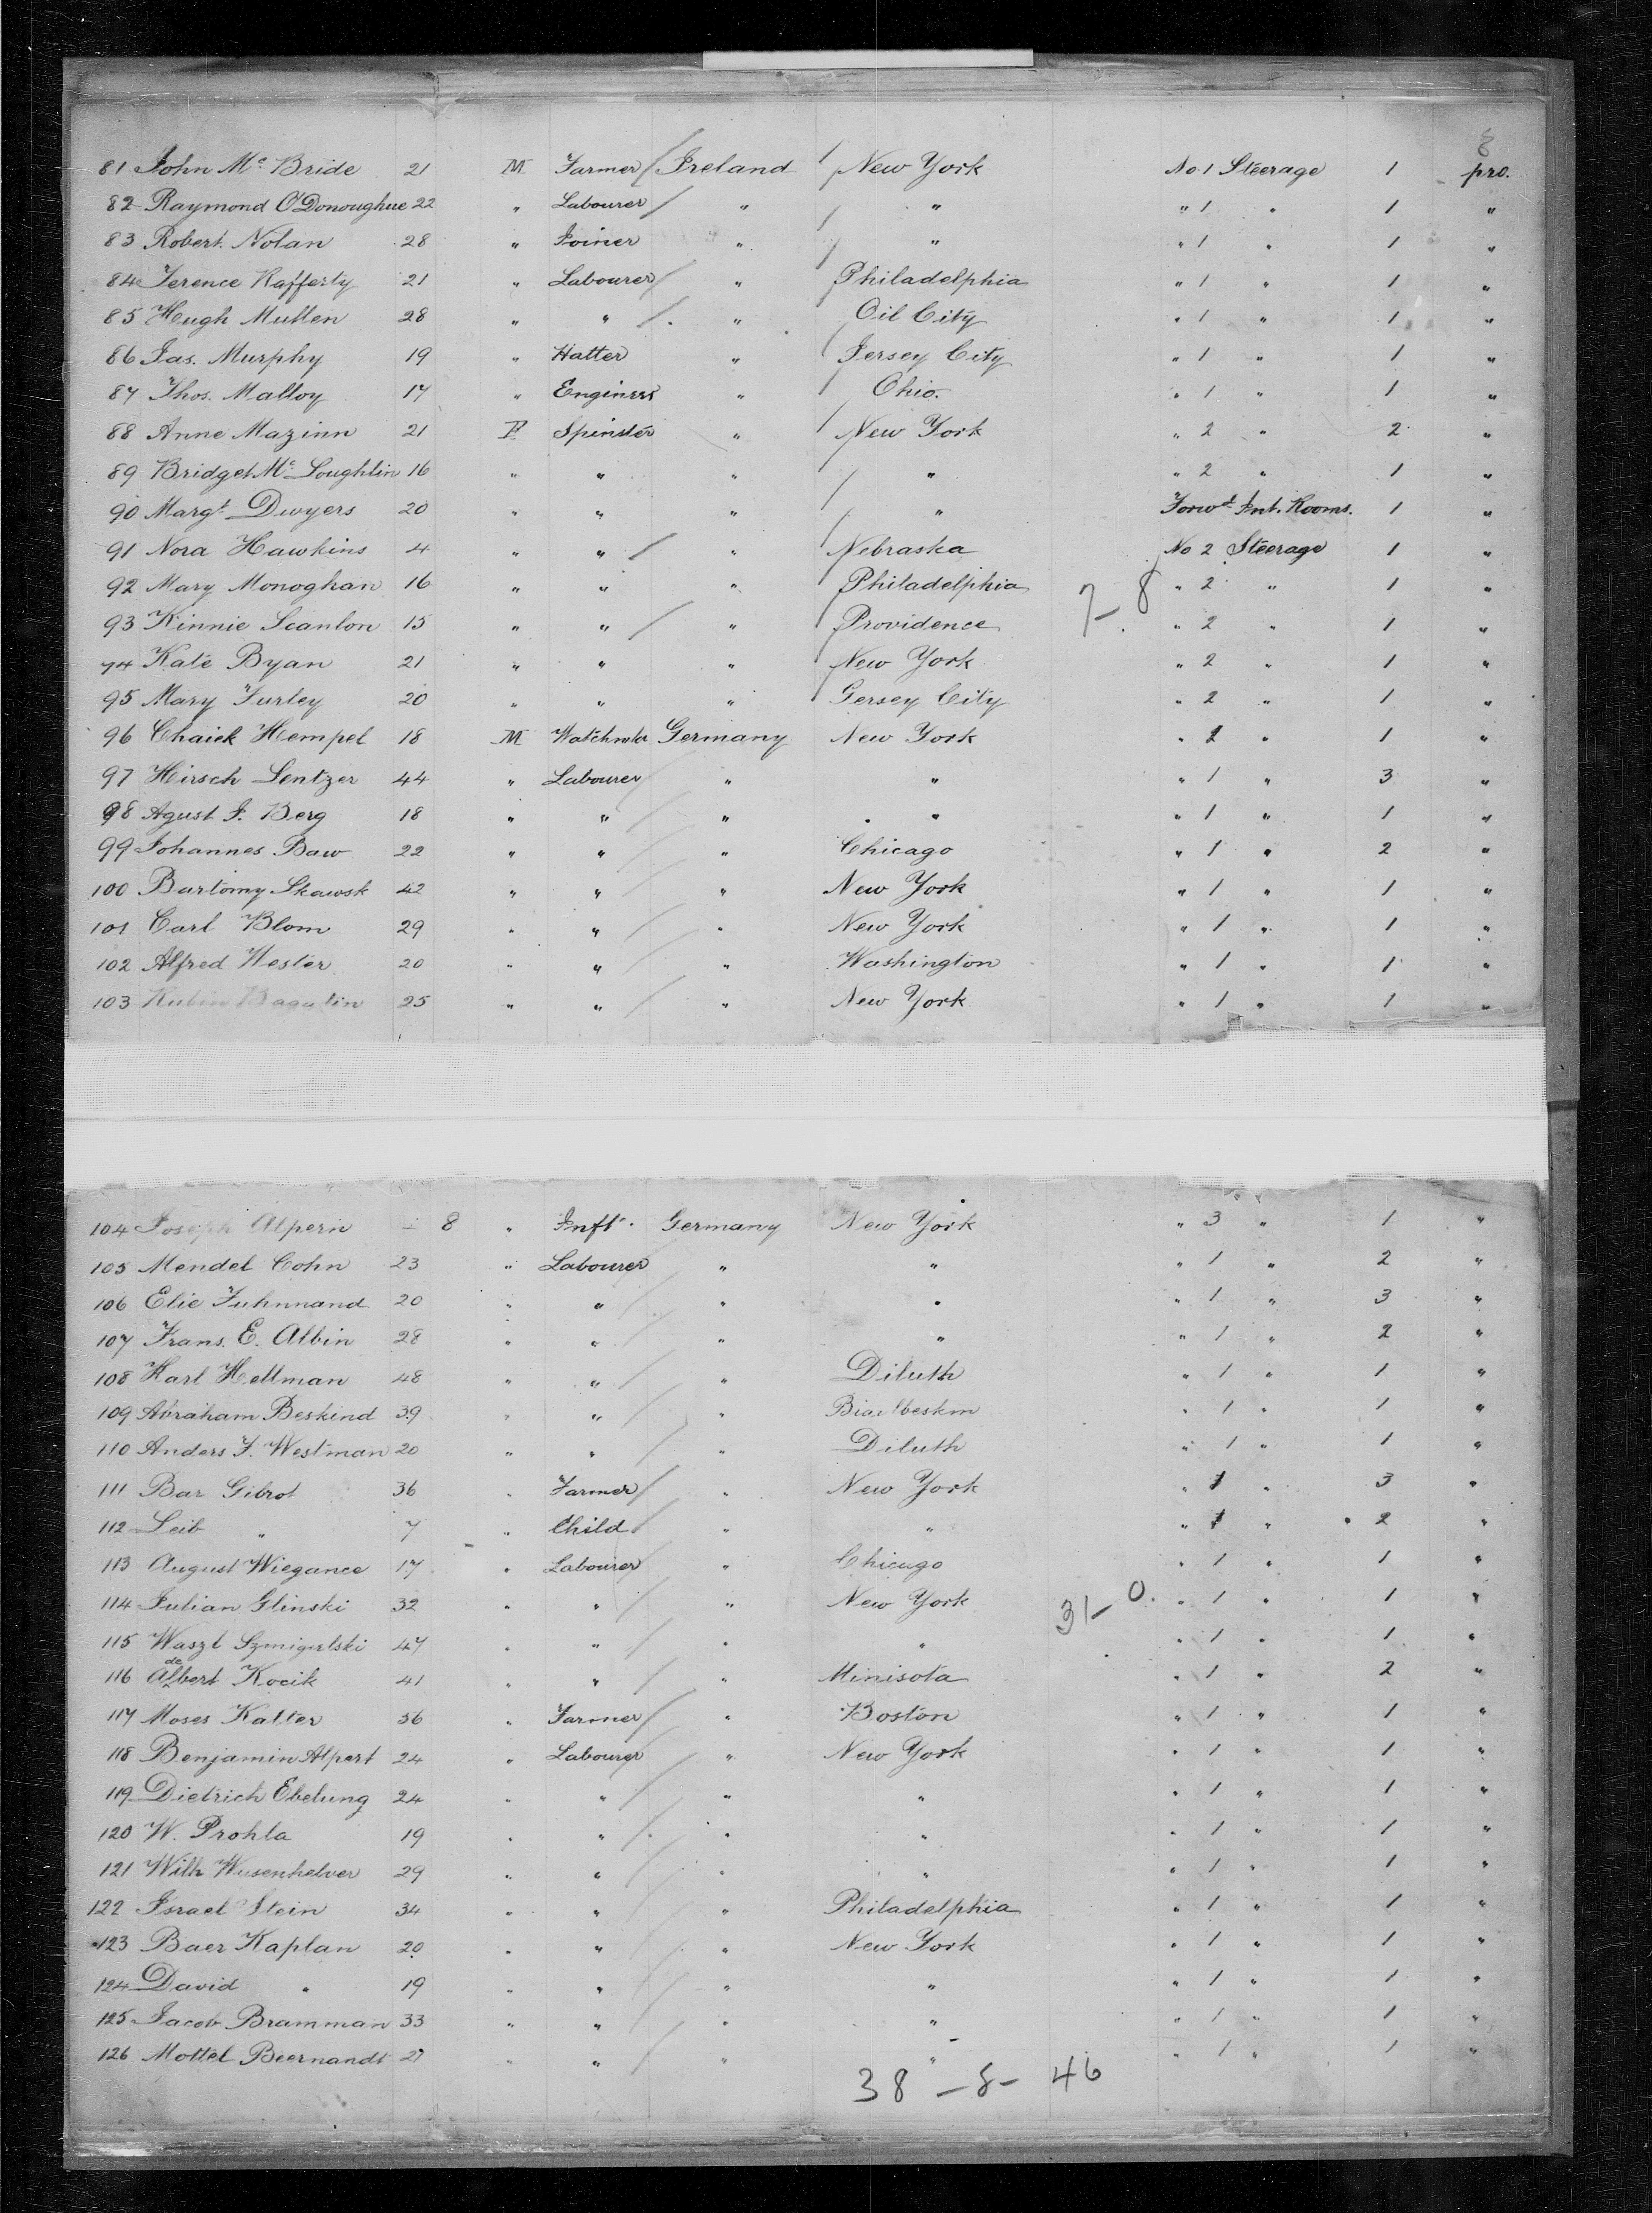 8
81 John Mc Bride 21 M Farmer Ireland New York No 1 Steerage 1 pro.
82 Raymond O'Donoughue 22 " Labourer " " " 1 " 1 "
83 Robert Nolan 28 " Joiner " " " 1 " 1 "
84 Terence Rafferty 21 " Labourer " Philadelphia " 1 " 1 "
85 Hugh Mullen 28 " " " Oil City " 1 " 1 "
86 Jas. Murphy 19 " Hatter " Jersey City " 1 " 1 "
87 Thos. Malloy 17 " Engineer " Ohio. " 1 " 1 "
88 Anne Mazinn 21 F Spinster " New York " 2 " 2 "
89 Bridget Mc Loughlin 16 " " " " " 2 " 1 "
90 Margt Dwyers 20 " " " " Forwd Int. Rooms. 1 "
91 Nora Hawkins 4 " " " Nebraska No 2 Steerage 1 "
92 Mary Monoghan 16 " " " Philadelphia " 2 " 1 "
7-8
93 Kinnie Scanlon 15 " " " Providence " 2 " 1 "
94 Kate Byan 21 " " " New York " 2 " 1 "
95 Mary Turley 20 " " " Jersey City " 2 " 1 "
96 Chaick Hempel 18 M Watchmkr Germany New York " 1 " 1 "
97 Hirsch Lentzer 44 " Labourer " " " 1 " 3 "
98 Agust J. Berg 18 " " " " " 1 " 1 "
99 Johannes Baw 22 " " " Chicago " 1 " 2 "
100 Bartomy Skawsk 42 " " " New York " 1 " 1 "
101 Carl Blom 29 " " " New York " 1 " 1 "
102 Alfred Wester 20 " " " Washington " 1 " 1 "
103 Rubin Bagatin 25 " " " New York " 1 " 1 "
104 Joseph Alpern 8 " Inft. Germany New York " 3 " 1 "
105 Mendel Cohn 23 " Labourer " " " 1 " 2 "
106 Elie Fuhnnand 20 " " " " " 1 " 3 "
107 Frans. E. Albin 28 " " " " " 1 " 2 "
108 Karl Hellman 48 " " " Diluth " 1 " 1 "
109 Abraham Beskind 39 " " " " 1 " 1 "
110 Anders J. Westman 20 " " " Diluth " 1 " 1 "
111 Bar Gibrot 36 " Farmer " New York " 1 " 3 "
112 Leib " 7 " Child " " " 1 " 2 "
113 August Wiegance 17 " Labourer " Chicago " 1 " 1 "
114 Julian Glinski 32 " " " New York " 1 " 1 "
31-0.
115 Waszl Szmigelski 47 " " " " " 1 " 1 "
de
116 Albert Kocik 41 " " " Minisota " 1 " 2 "
117 Moses Kalter 56 " Farmer " Boston " 1 " 1 "
118 Benjamin Alpert 24 " Labourer " New York " 1 " 1 "
119 Dietrich Ebelung 24 " " " " " 1 " 1 "
120 W. Prohla 19 " " " " " 1 " 1 "
121 Wilh Wusenhelver 29 " " " " " 1 " 1 "
122 Israel Stein 34 " " " Philadelphia " 1 " 1 "
123 Baer Kaplan 20 " " " New York " 1 " 1 "
124 David " 19 " " " " " 1 " 1 "
125 Jacob Bramman 33 " " " " " 1 " 1 "
126 Mottel Beernandt 27 " " " " " 1 " 1 "
38-8-46